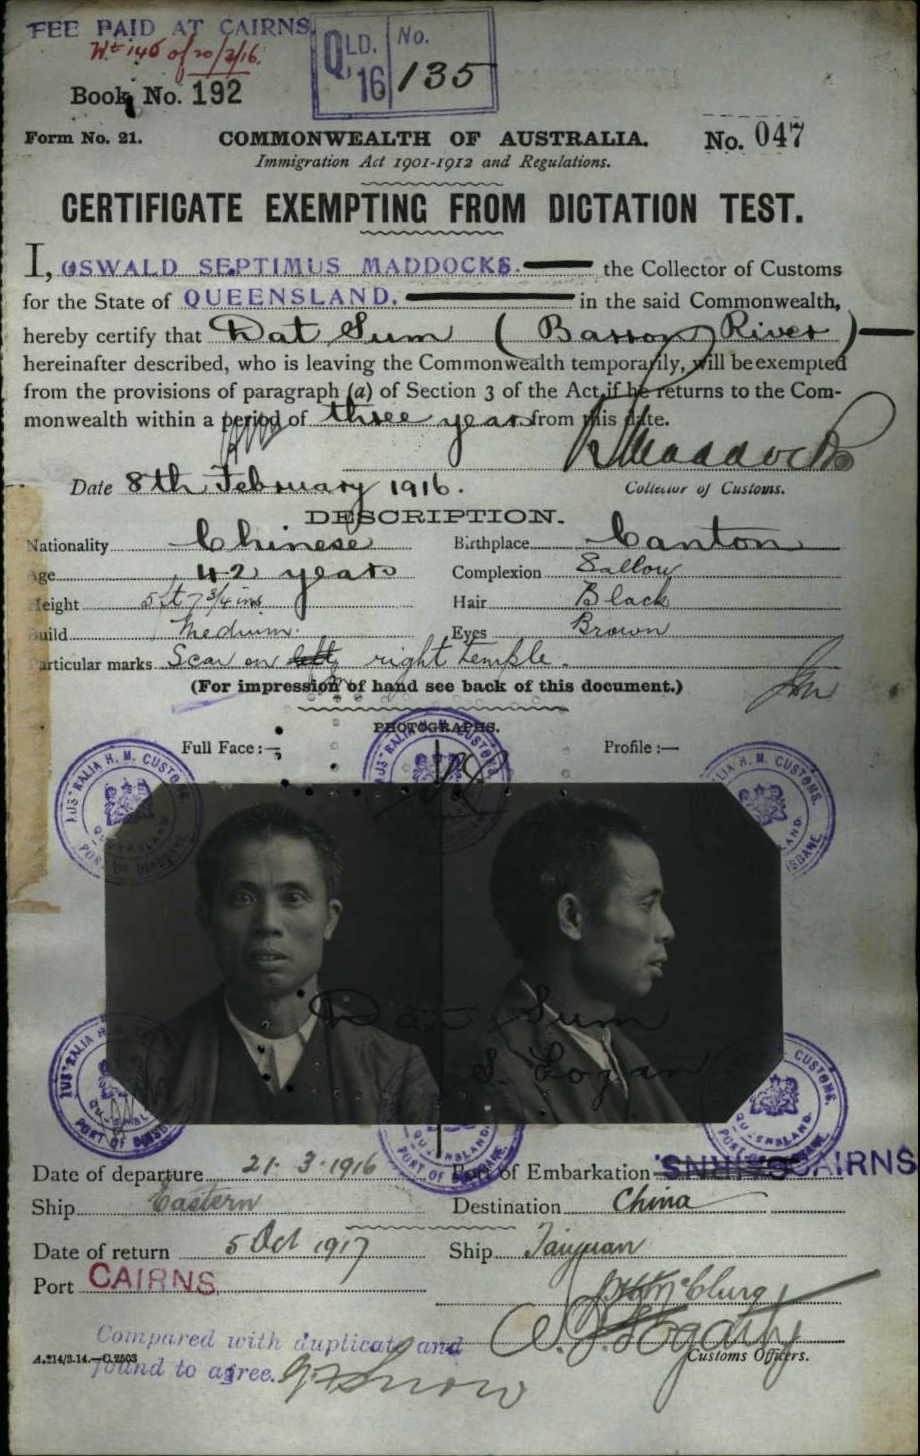 FEE PAID AT CAIRNS.
Wt 146 of 20/2/16.
QLD. '16 No. 135
Book No. 192
Form No. 21. COMMONWEALTH OF AUSTRALIA. No. 047
Immigration Act 1901-1912 and Regulations.
CERTIFICATE EXEMPTING FROM DICTATION TEST.
I, OSWALD SEPTIMUS MADDOCKS. the Collector of Customs
for the State of QUEENSLAND. in the said Commonwealth,
hereby certify that Dat Sum (Barron River)
hereinafter described, who is leaving the Commonwealth temporarily, will be exempted
from the provisions of paragraph (a) of Section 3 of the Act if he returns to the Com-
monwealth within a period of three years from this date.
Maddocks
Date 8th February 1916. Collector of Customs.
DESCRIPTION.
Nationality Chinese Birthplace Canton
Age 42 years Complexion Sallow
Height 5 ft 7 3/4 ins Hair Black
Build Medium. Eyes Brown
Particular marks Scar on left right temple.
(For impression of hand see back of this document.)
PHOTOGRAPHS.
Full Face:— Profile:—
AUSTRALIA H. M. CUSTOMS. QUEENSLAND. PORT OF BRISBANE
Dat Sum
S. Logan
Date of departure 21. 3. 1916 Port of Embarkation CAIRNS
Ship Eastern Destination China
Date of return 5 Oct 1917 Ship Taiyuan
Port CAIRNS
McClurg
Fogarty
Compared with duplicate and
found to agree.
A.214/3.14.—C.2503 Customs Officers.